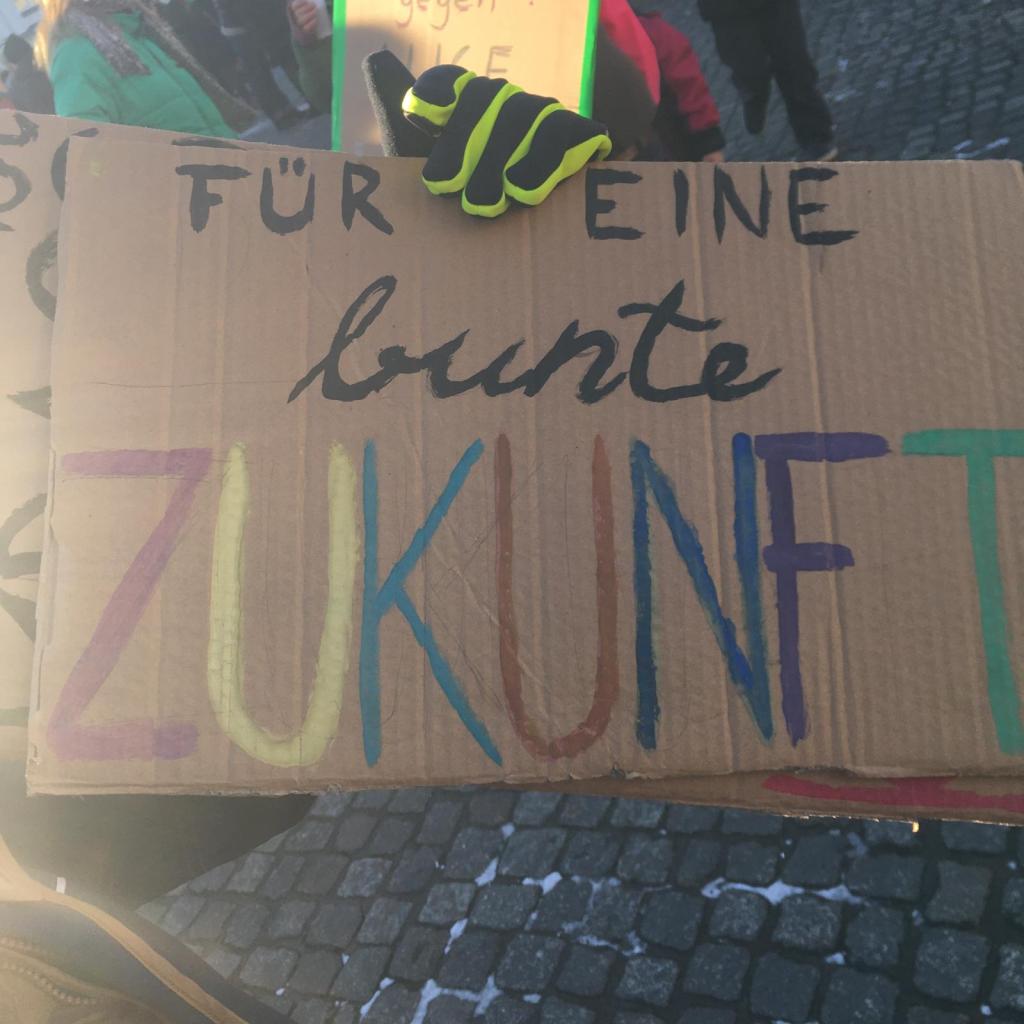 gegen
FÜR EINE
bunte
ZUKUNFT